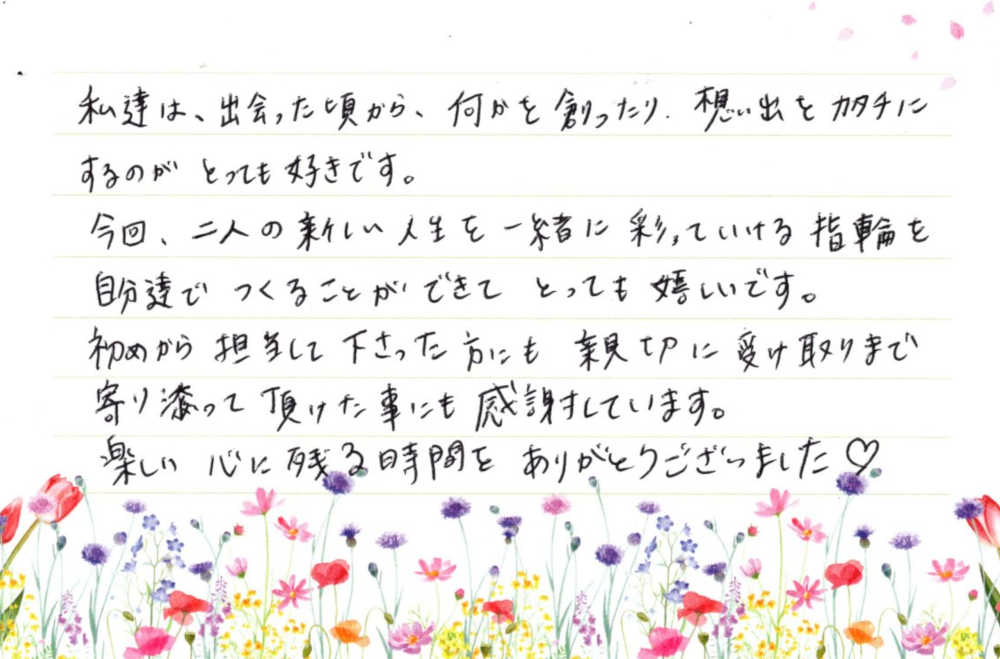 私達は、出会った頃から、何かを創ったり、想い出をカタチに
するのが とっても好きです。
今回、二人の新しい人生を一緒に彩っていける指輪を
自分達で つくることができて とっても嬉しいです。
初めから担当して下さった方にも 親切に受け取りまで
寄り添って頂けた事にも感謝しています。
楽しい 心に残る時間を ありがとうございました♡